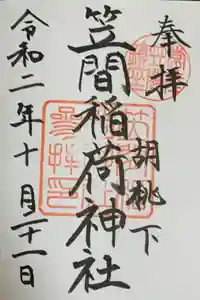 奉拝
胡桃下
笠間稲荷神社
令和二年十月二十一日